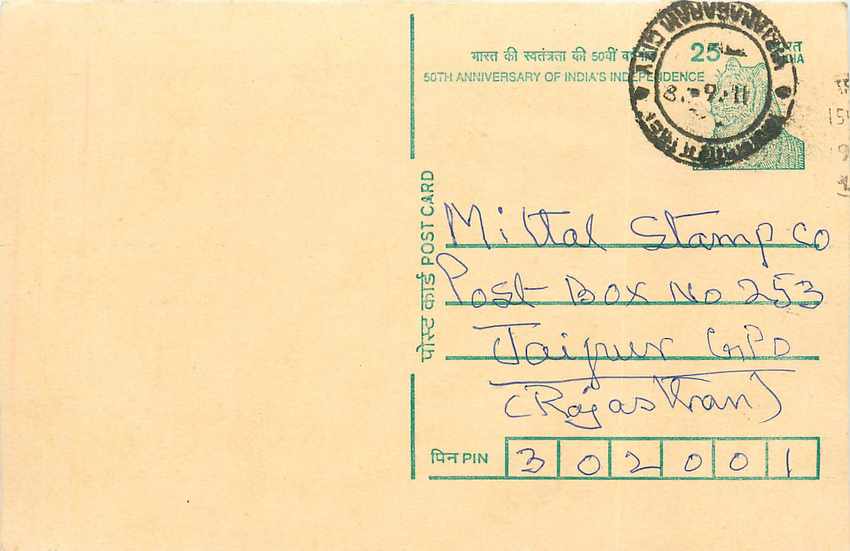 भारत की स्वतंत्रता की 50वीं
50TH ANNIVERSARY OF INDIA'S INDEPENDENCE
25
CITY
पोस्ट कार्ड POST CARD
Mittal Stamp co
Post Box No 253
Jaipur GPO
(Rajasthan)
पिन PIN 302001